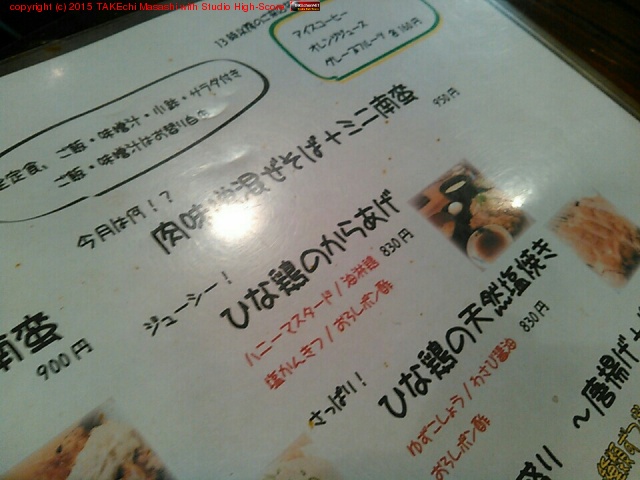 copyright (c) 2015 TAKEchi Masashi
Studio High-Score
アイスコーヒー
オレンジジュース
グレープフルーツ 各160円
定食、ご飯・味噌汁・小鉢・サラダ付き
ご飯・味噌汁はお替り自由
今月は何!?
混ぜそば+ミニ南蛮 950円
ジューシー!
ひな鶏のからあげ 830円
ハニーマスタード/油淋鶏
塩かんきつ/おろしポン酢
南蛮
900円
さっぱり!
ひな鶏の天然塩焼き 830円
ゆずこしょう/わさび醤油
おろしポン酢
〜唐揚げ